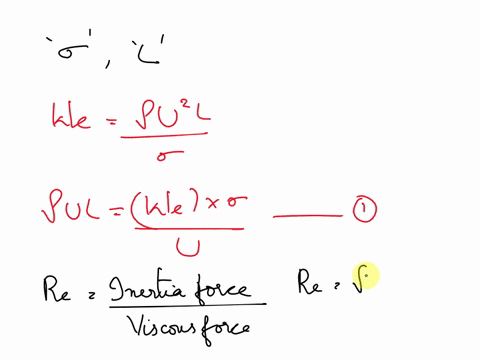 'σ', 'L'
kle = ρU²L / σ
ρUL = (kle) × σ / U ——— ①
Re = Inertia force / Viscous force Re = ρ